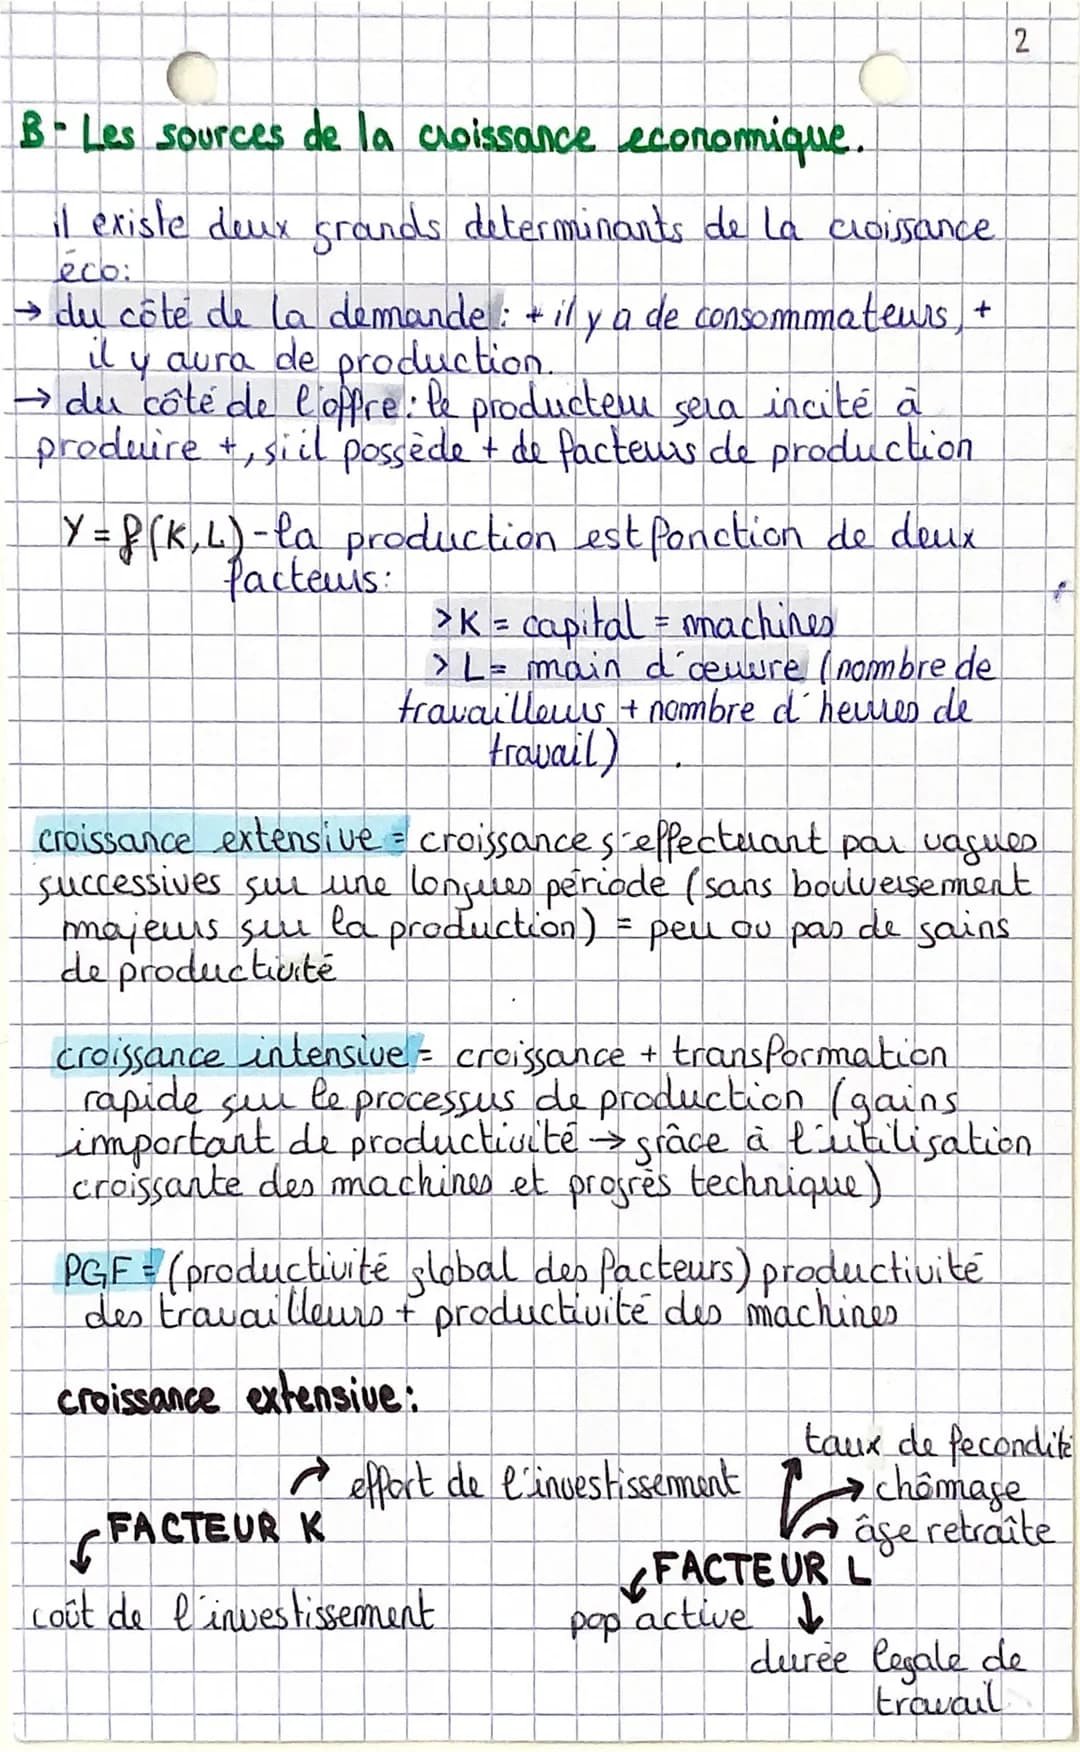 2
B - Les sources de la croissance economique.
il existe deux grands determinants de la croissance
éco:
→ du côté de la demande : + il y a de consommateurs, +
il y aura de production.
→ du côté de l'offre : le producteur sera incité à
produire +, si il possède + de facteurs de production
Y = f(K, L) - la production est fonction de deux
facteurs :
> K = capital = machines
> L = main d'œuvre (nombre de
travailleurs + nombre d'heures de
travail)
croissance extensive = croissance s'effectuant par vagues
successives sur une longues période (sans boulversement
majeurs sur la production) = peu ou pas de gains
de productivité
croissance intensive = croissance + transformation
rapide sur le processus de production (gains
important de productivité → grâce à l'utilisation
croissante des machines et progrès technique)
PGF = (productivité global des facteurs) productivité
des travailleurs + productivité des machines
croissance extensive :
taux de fecondité
↗ effort de l'investissement → chômage
FACTEUR K → âge retraite
FACTEUR L
coût de l'investissement pop active ↓
durée legale de
travail